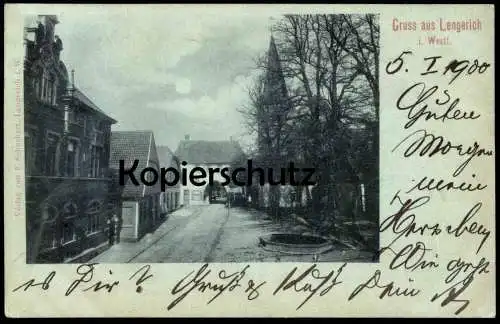 Gruss aus Lengerich
i. Westf.
5. I 1900
Guten
Morgen
mein
Herzbeg
Wie geht
es Dir? Gruß & Kuß Dein
Kopierschutz
Verlag von Lengerich i. W.